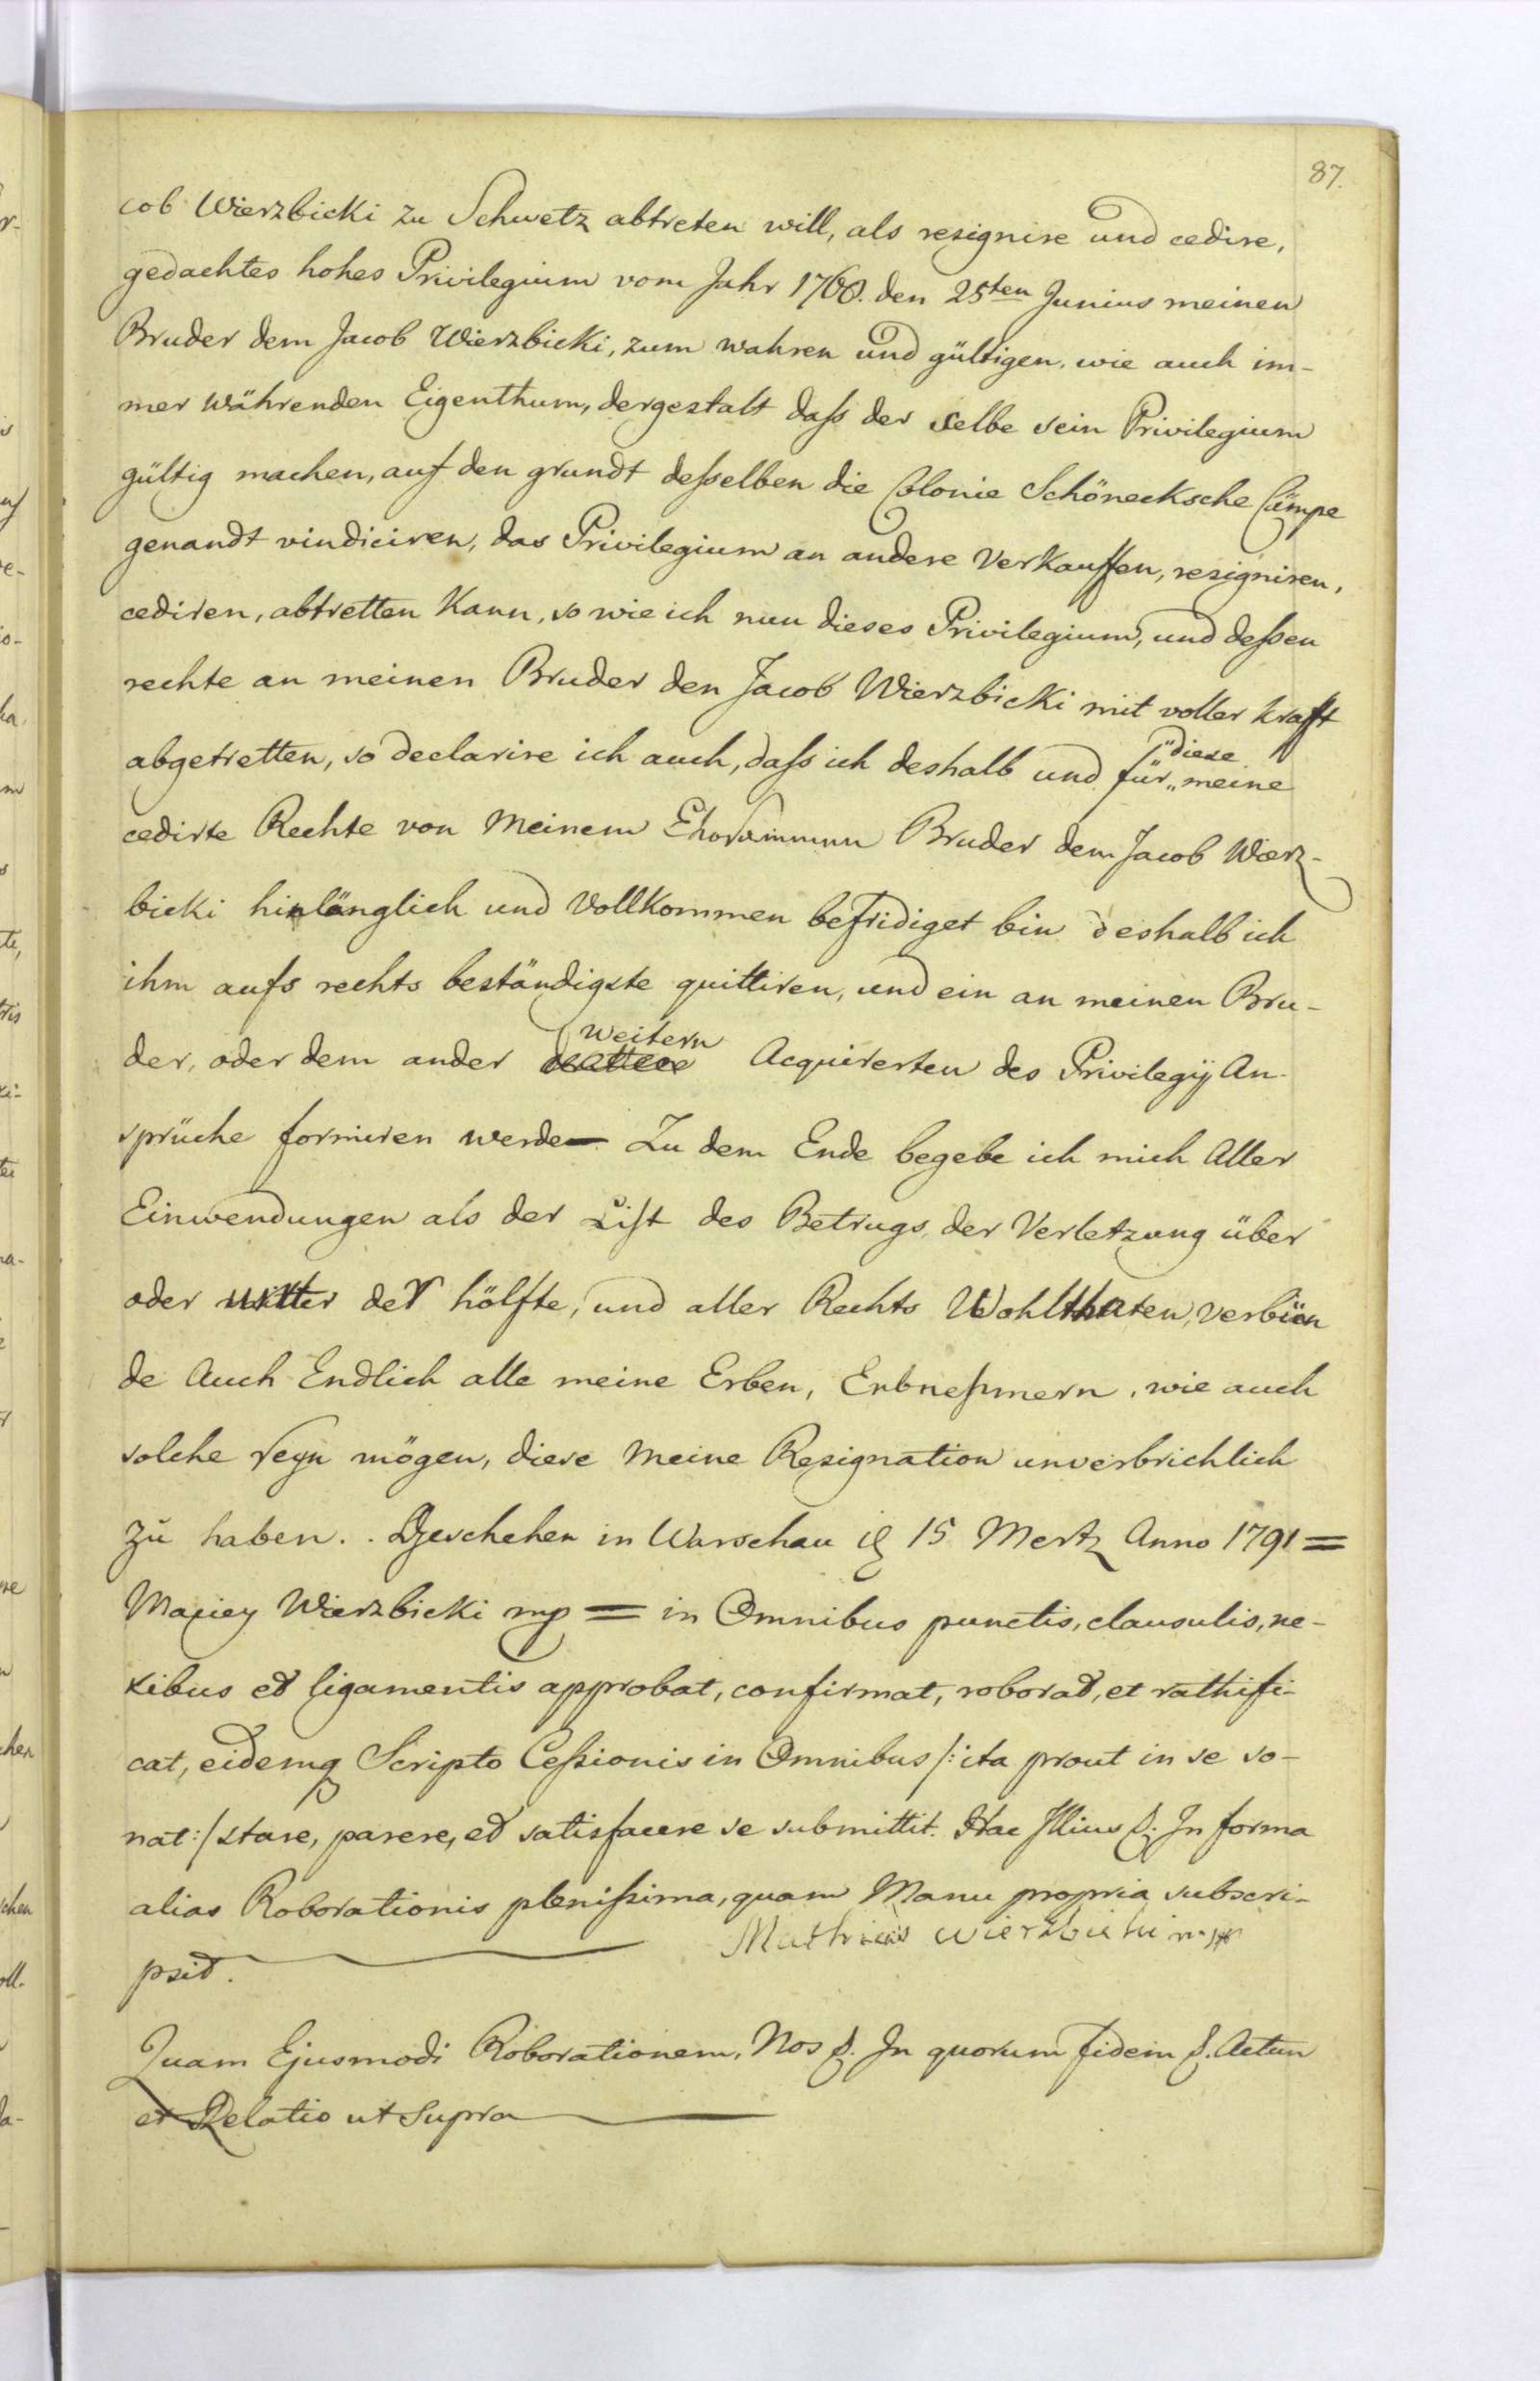 87.
cob Wierzbicki zu Schwetz abtreten will, als resignire und cedire,
gedachtes hohes Privilegium vom Jahr 1768. den 25ten Junius meinen
Bruder dem Jacob Wierzbicki, zum wahren und gültigen, wie auch im-
mer währenden Eigenthum, dergestalt daß der selbe sein Privilegium
gültig machen, auf den grundt deßelben die Colonie Schönecksche Cämpe
genandt vindiciren, das Privilegium an andere Verkauffen, resigniren,
cediren, abtretten Kann, so wie ich nun dieses Privilegium, und deßen
rechte an meinen Bruder den Jacob Wierzbicki mit voller krafft
abgetretten, so declarire ich auch, daß ich deshalb und für diese meine
cedirte Rechte von Meinem Bruder dem Jacob Wierz-
bicki hinlänglich und Vollkommen befridiget bin deshalb ich
ihm aufs rechts beständigste quittiren, und ein an meinen Bru-
der, oder dem ander weitern Acquirerten des Privilegij An-
sprüche formiren werde Zu dem Ende begebe ich mich Aller
Einwendungen als der List des Betrugs, der Verletzung über
oder unter der hölfte, und aller Rechts Wohlthaten, verbün
de Auch Endlich alle meine Erben, Erbnehmern, wie auch
solche seyn mögen, diese Meine Resignation unverbrichlich
zu haben.. Geschehen in Warschau 15 Mertz Anno 1791 =
Maciey Wierzbicki mp = in Omnibus punctis, clausulis, ne-
xibus et ligamentis approbat, confirmat, roborat, et rathifi-
cat, eidemq Scripto Ceßionis in Omnibus /: ita prout in se so-
nat :/ stare, parere, et satisfacere se submittit. Hac Illius p. In forma
alias Roborationis pleniſsima, quam Manu propria subscri-
psit. Mathias Wierzbicki mp
Quam Ejusmodi Roborationem, Nos p. In quorum fidem p. Actum
et Relatio ut Supra